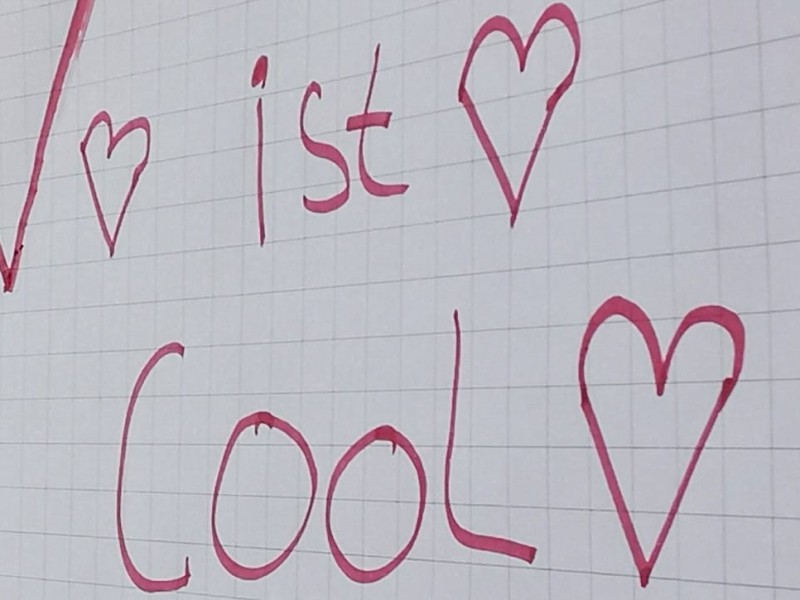 ist
Cool